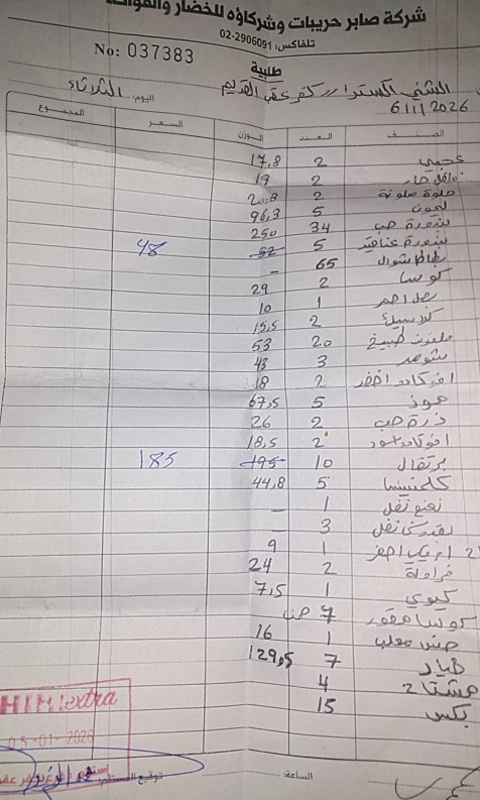 شركة صابر حريبات وشركاؤه للخضار والفواكه
تلفاكس: 2906091-02
No: 037383
طلبية
الشني اكسترا - كفر عقب القديم
6/1/2026 اليوم: الثلاثاء
الصنف العدد الوزن السعر المجموع
عجمي 2 17,8
2 19
حلوة ملونة 2 20,8
ليمون 5 96,3
بندورة حب 34 250
بندورة عناقيد 5 52 48
بطاطا شوال 65 -
كوسا 2 29
بصل احمر 1 10
2 15,5
ملفوف طبيخ 20 53
شومر 3 43
افوكادو اخضر 2 18
موز 5 67,5
ذرة حب 2 26
افوكادو اسود 2 18,5
برتقال 10 195 185
كلمنتينا 5 44,8
نعنع نفل 1 -
بقدونس نفل 3 -
1 9
فراولة 2 24
كيوي 1 7,5
كوسا محفور 7 صحن
خس معلب 1 16
خيار 7 129,5
مشتاح 4
بكس 15
extra
05-01-2026
الساعة: توقيع المستلم: